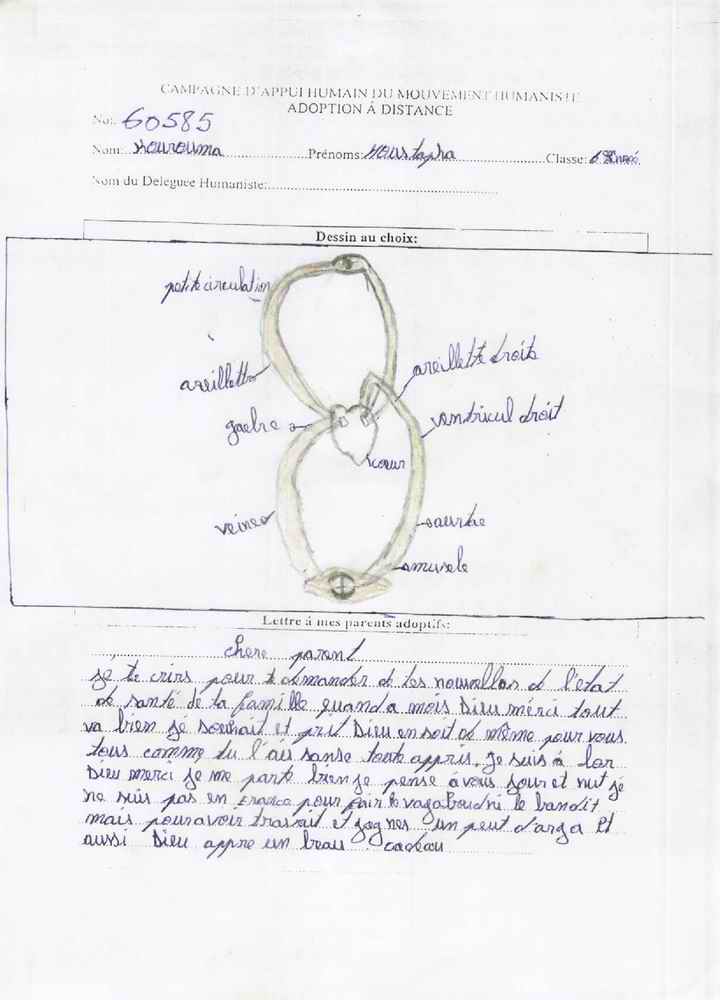 CAMPAGNE D'APPUI HUMAIN DU MOUVEMENT HUMANISTE
ADOPTION À DISTANCE
No: 60585
Nom: Kourouma Prénoms: Moustapha Classe:
Nom du Deleguee Humaniste:
Dessin au choix:
petite circulation
areillette
areillette droite
gaebre
ventricul droit
cœur
veines
amusele
Lettre à mes parents adoptifs:
chere parent
je te crirs pour te demander de tes nouvelles d l'état
de santé de ta famille quand a mois Dieu mérci tout
va bien je souhait et prit Dieu en soit de même pour vous
tous comme tu l'au sanse toute appris. je suis à
Dieu merci je me parte bien je pense à vous jour et nut je
ne suis pas en pour fair le vagabond ni le bandit
mais pour avoir travait et gagner un peut d'arga Et
aussi Dieu appre un beau cadeau